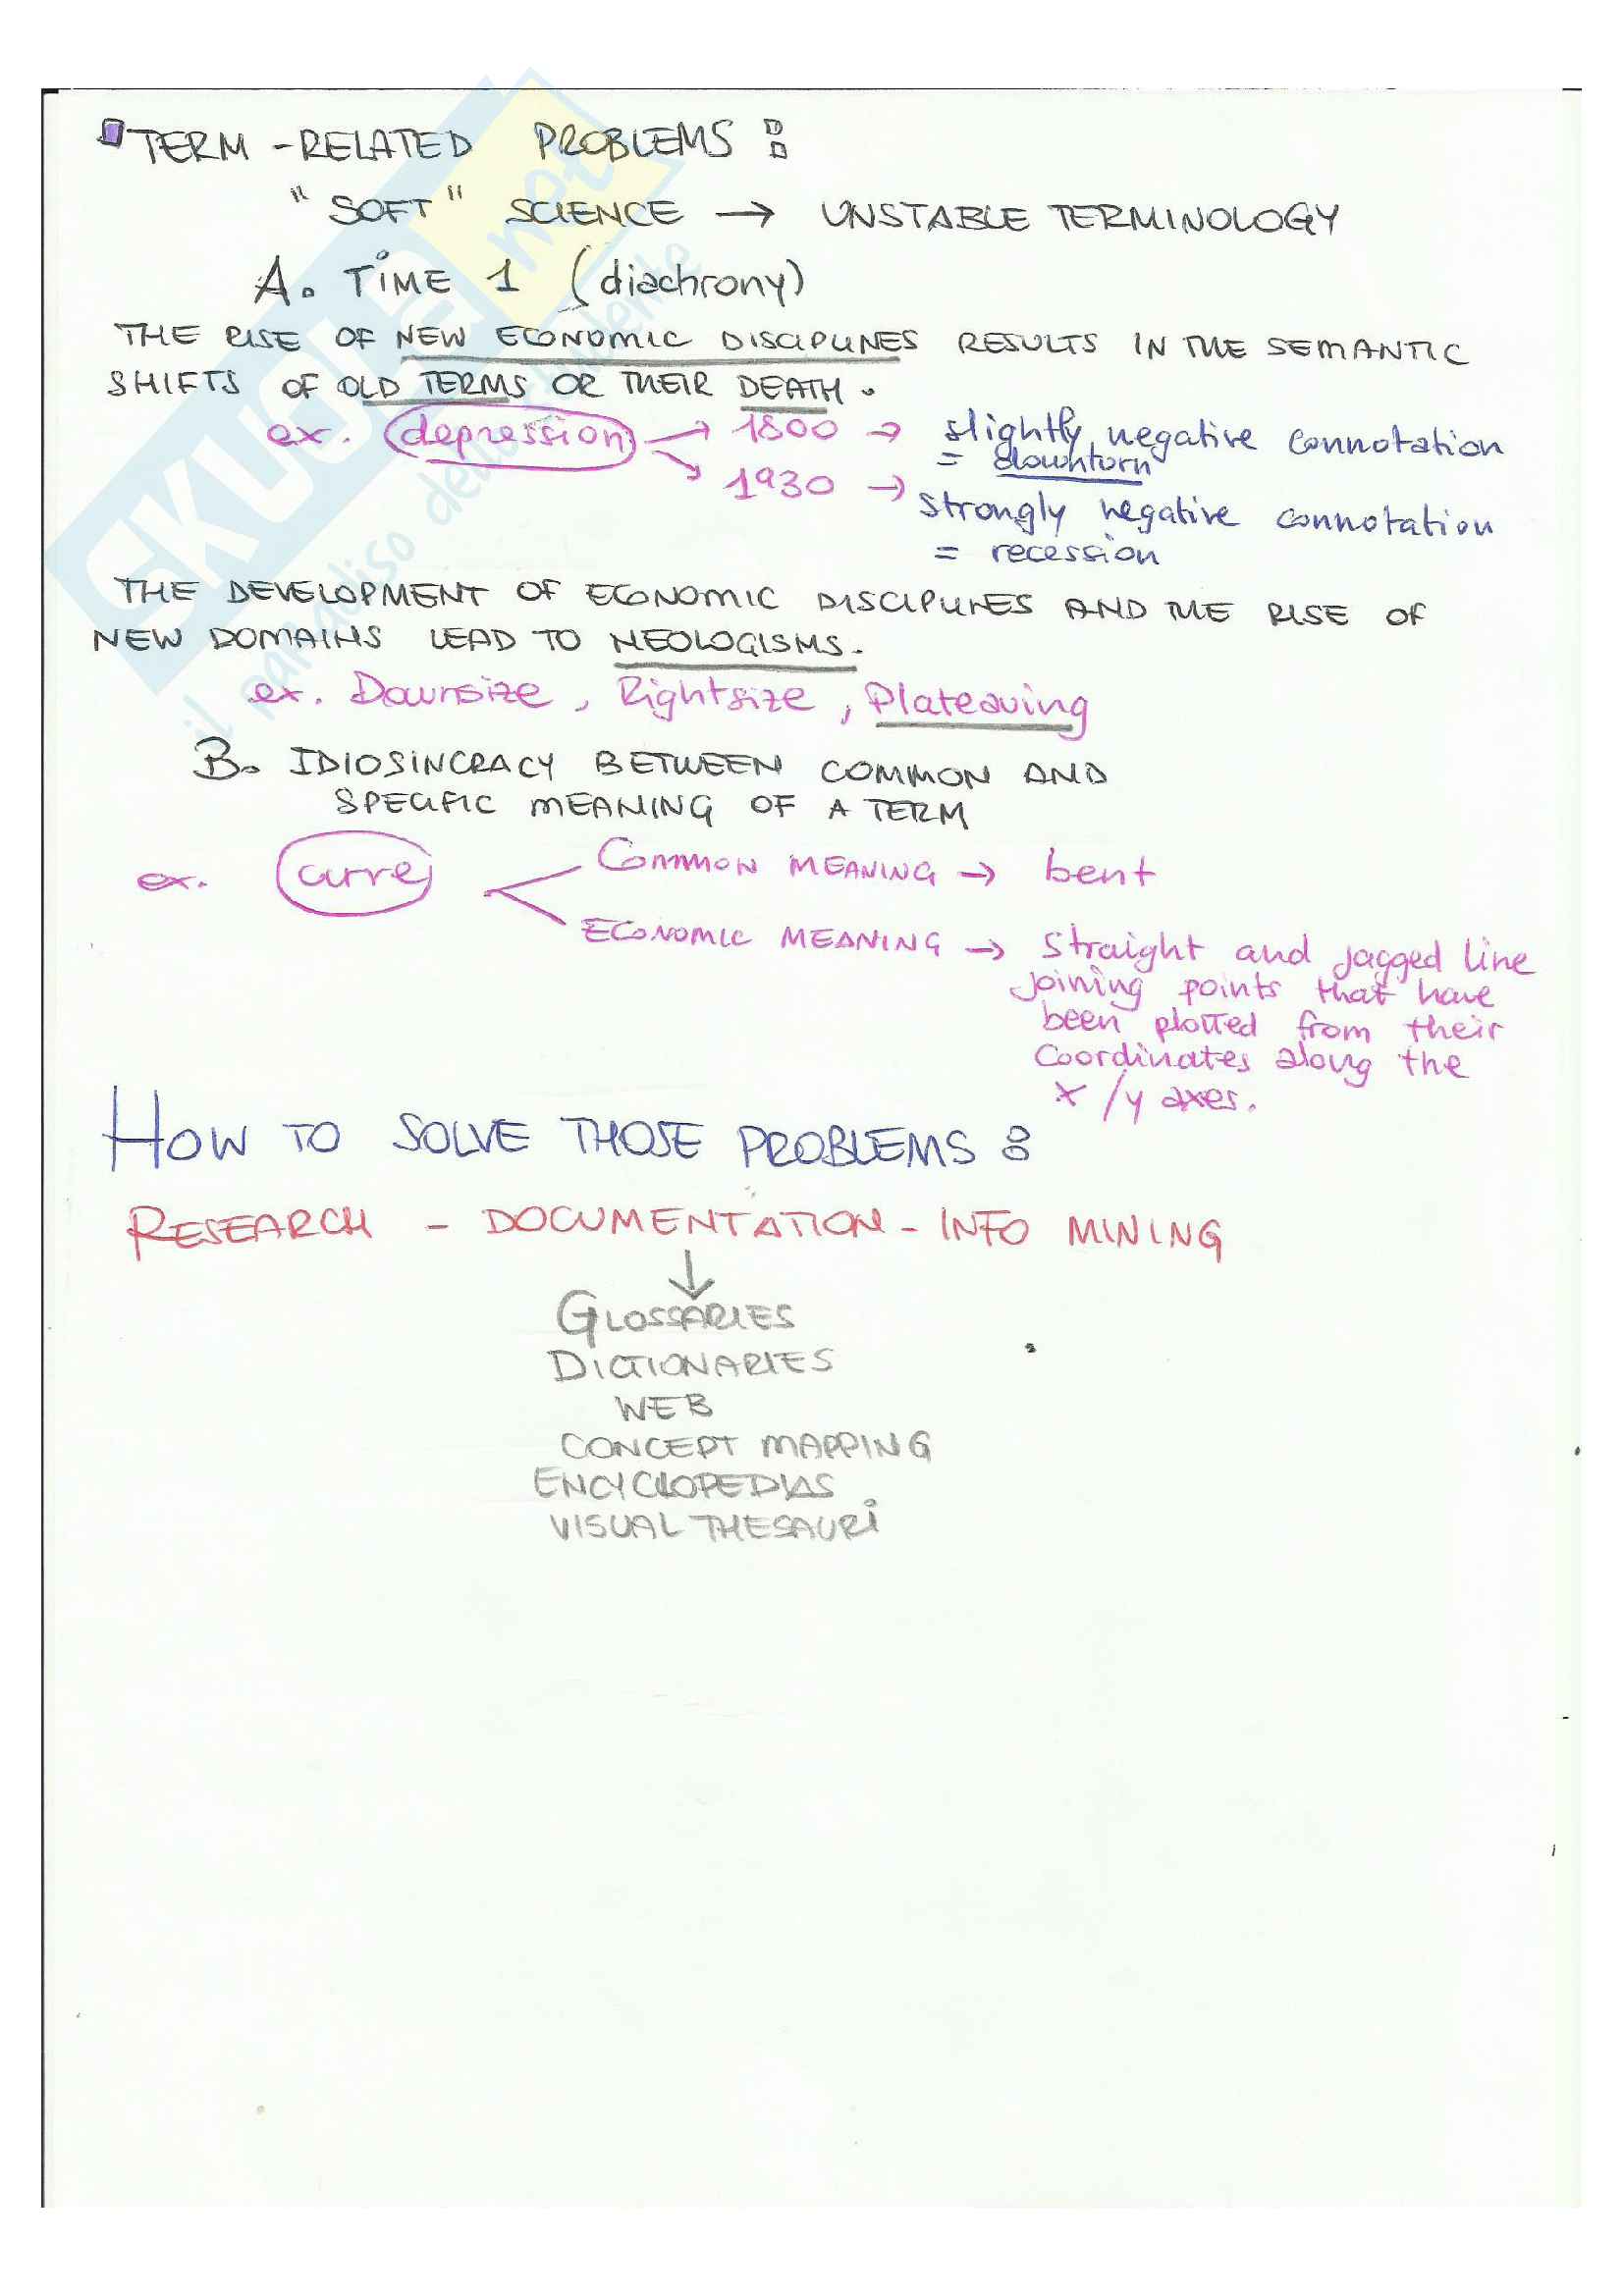 TERM-RELATED PROBLEMS:
"SOFT" SCIENCE → UNSTABLE TERMINOLOGY
A. TIME 1 (diachrony)
THE RISE OF NEW ECONOMIC DISCIPLINES RESULTS IN THE SEMANTIC
SHIFTS OF OLD TERMS OR THEIR DEATH.
ex. depression → 1800 → slightly negative connotation
= downturn
→ 1930 → strongly negative connotation
= recession
THE DEVELOPMENT OF ECONOMIC DISCIPLINES AND THE RISE OF
NEW DOMAINS LEAD TO NEOLOGISMS.
ex. Downsize, Rightsize, Plateauing
B. IDIOSINCRACY BETWEEN COMMON AND
SPECIFIC MEANING OF A TERM
ex. curve COMMON MEANING → bent
ECONOMIC MEANING → straight and jagged line
joining points that have
been plotted from their
coordinates along the
x/y axes.
HOW TO SOLVE THOSE PROBLEMS:
RESEARCH - DOCUMENTATION - INFO MINING
↓
GLOSSARIES
DICTIONARIES
WEB
CONCEPT MAPPING
ENCYCLOPEDIAS
VISUAL THESAURI
SKUOLA.net
il paradiso dello studente